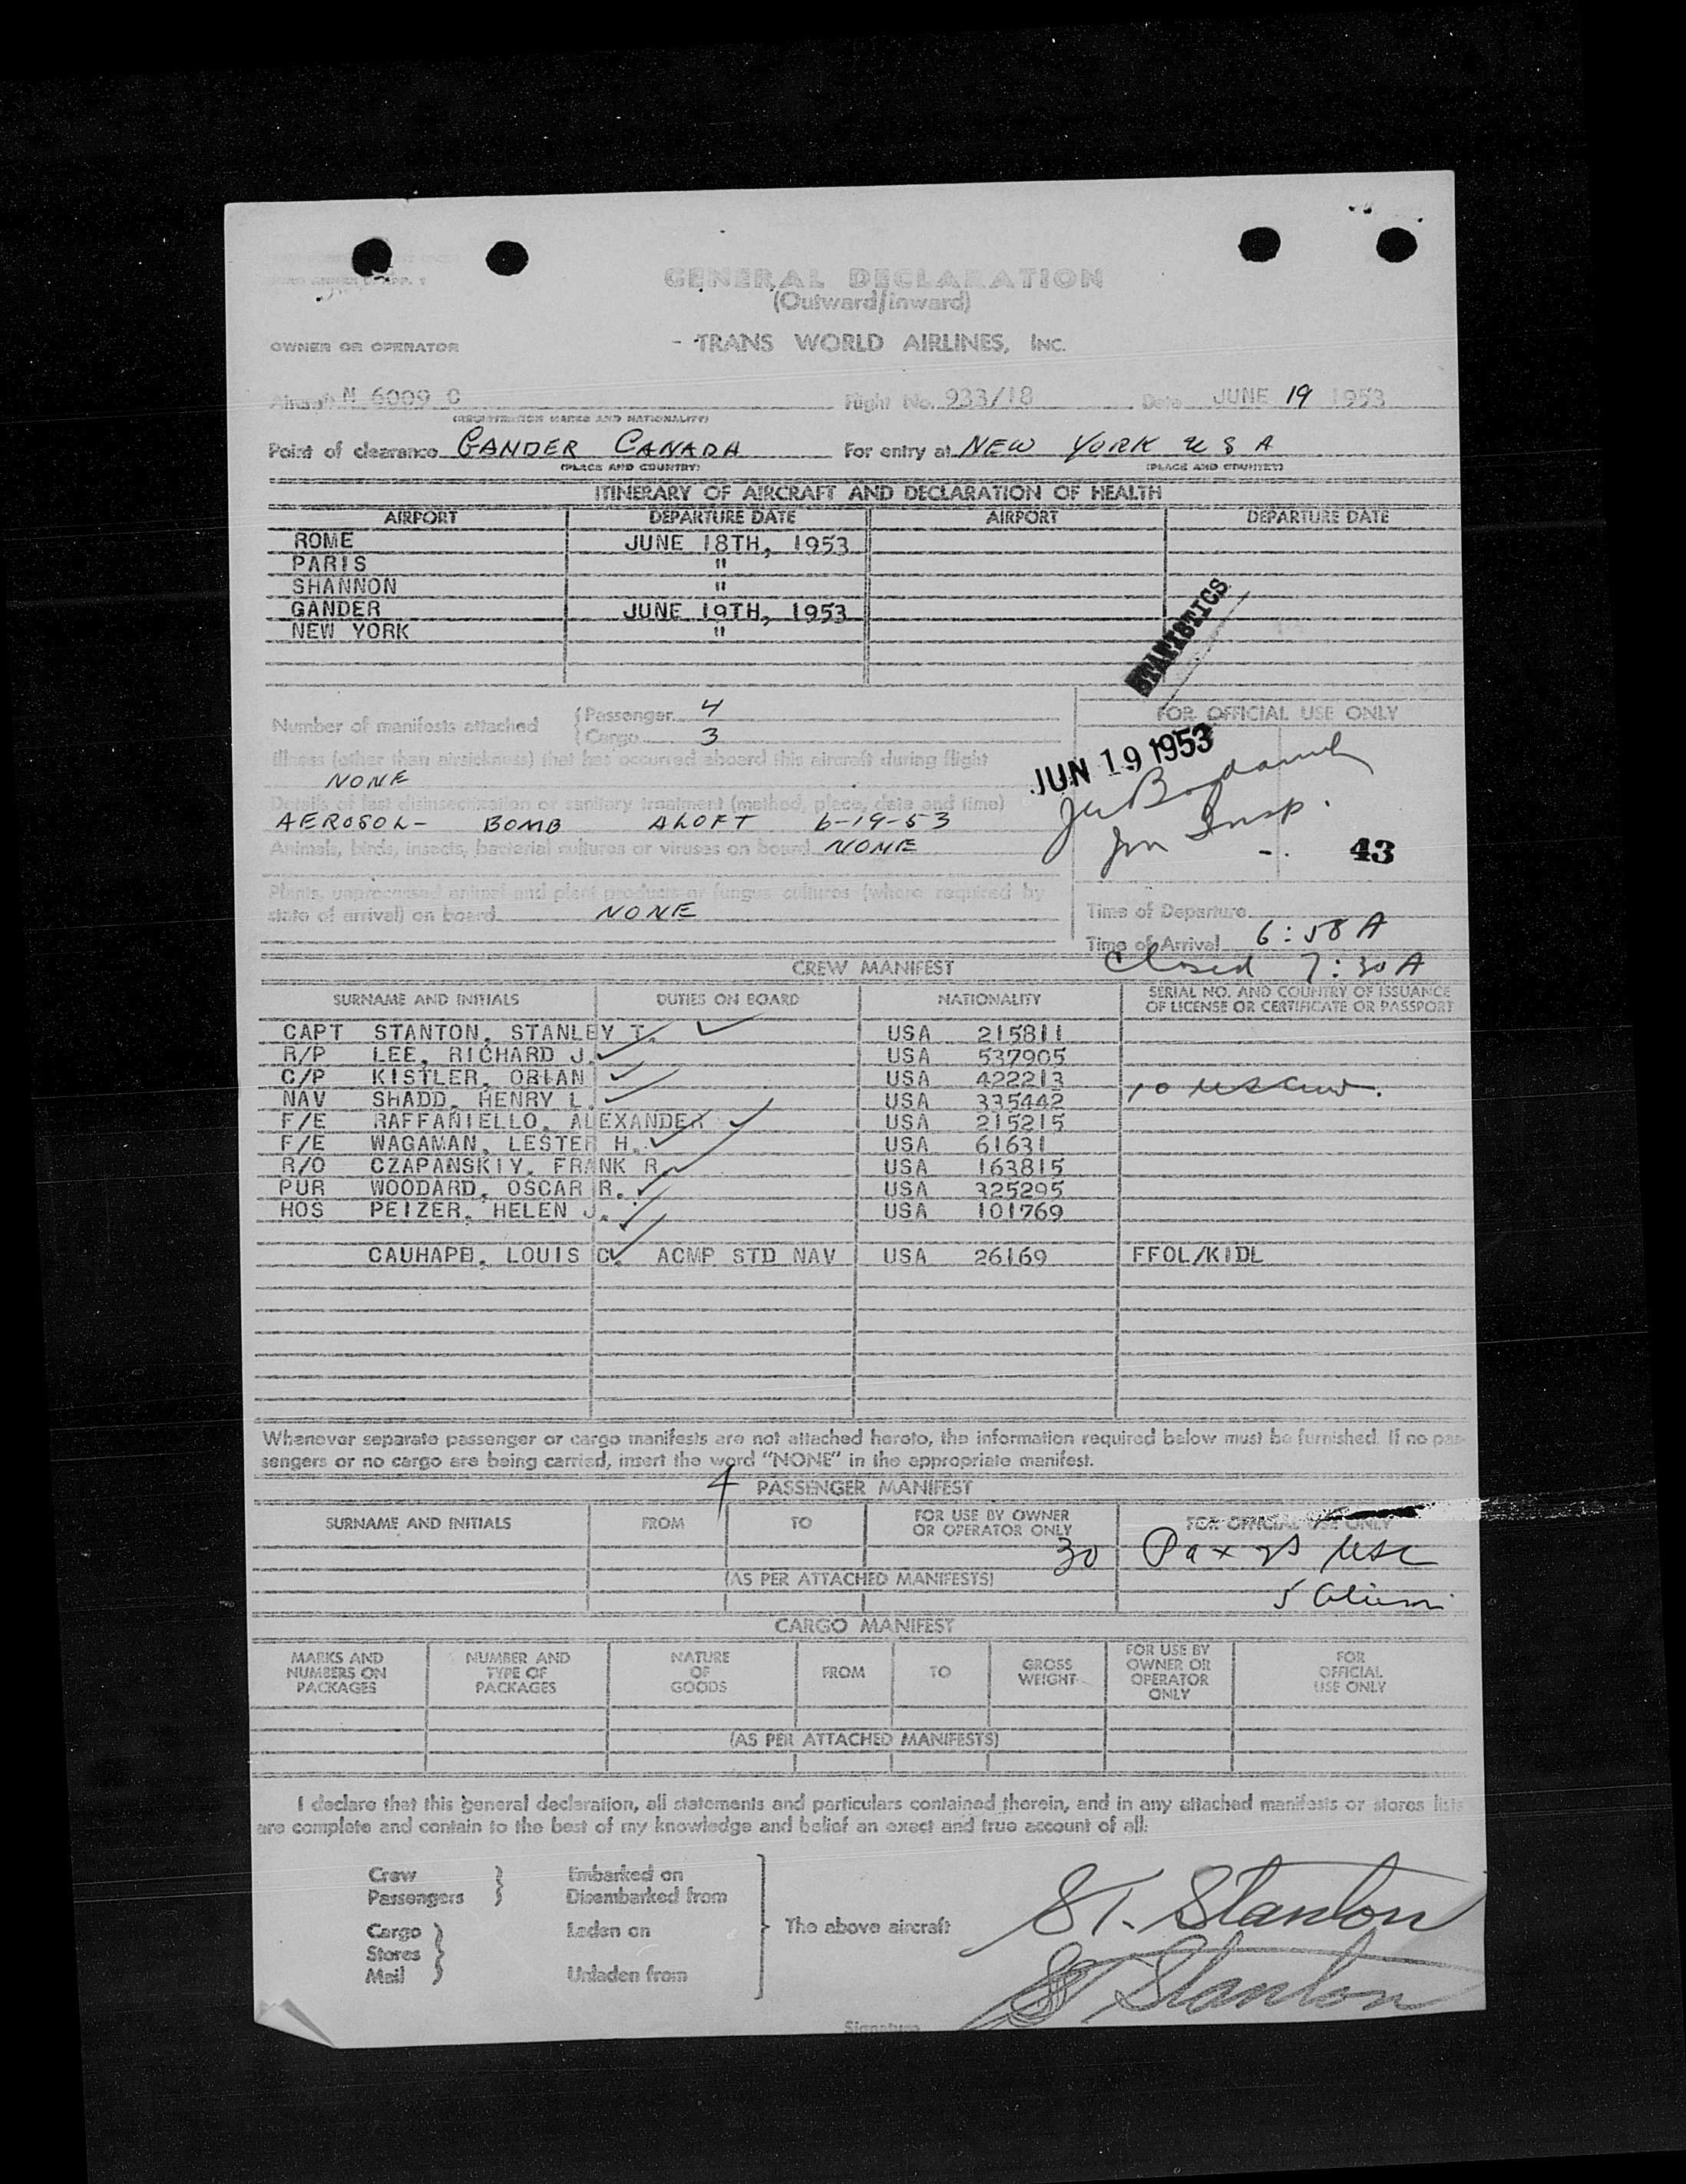 GENERAL DECLARATION
(Outward/inward)
OWNER OR OPERATOR - TRANS WORLD AIRLINES, INC.
Aircraft N 6009 C Flight No. 933/18 Date JUNE 19 1953
(REGISTRATION MARKS AND NATIONALITY)
Point of clearance GANDER CANADA For entry at NEW YORK U S A
(PLACE AND COUNTRY) (PLACE AND COUNTRY)
ITINERARY OF AIRCRAFT AND DECLARATION OF HEALTH
AIRPORT DEPARTURE DATE AIRPORT DEPARTURE DATE
ROME JUNE 18TH, 1953
PARIS "
SHANNON "
GANDER JUNE 19TH, 1953
NEW YORK "
STATISTICS
Number of manifests attached
(Passenger 4
(Cargo 3
FOR OFFICIAL USE ONLY
JUN 19 1953
Illness (other than airsickness) that has occurred aboard this aircraft during flight
NONE
Details of last disinsectization or sanitary treatment (method, place, date and time)
AEROSOL- BOMB ALOFT 6-19-53
Imm Insp.
43
Animals, birds, insects, bacterial cultures or viruses on board NONE
Plants, unprocessed animal and plant products or fungus cultures (where required by
state of arrival) on board NONE
Time of Departure
Time of Arrival 6:58 A
Closed 7:30 A
CREW MANIFEST
SURNAME AND INITIALS DUTIES ON BOARD NATIONALITY SERIAL NO. AND COUNTRY OF ISSUANCE
OF LICENSE OR CERTIFICATE OR PASSPORT
CAPT STANTON, STANLEY T. USA 215811
R/P LEE, RICHARD J. USA 537905
C/P KISTLER, ORLAN USA 422213
NAV SHADD, HENRY L. USA 335442
10 USC
F/E RAFFANIELLO, ALEXANDER USA 215215
F/E WAGAMAN, LESTER H. USA 61631
R/O CZAPANSKIY, FRANK R. USA 163815
PUR WOODARD, OSCAR R. USA 325295
HOS PEIZER, HELEN J. USA 101769
CAUHAPE, LOUIS C. ACMP STD NAV USA 26169 FFOL/KIDL
Whenever separate passenger or cargo manifests are not attached hereto, the information required below must be furnished. If no pas-
sengers or no cargo are being carried, insert the word "NONE" in the appropriate manifest.
4 PASSENGER MANIFEST
SURNAME AND INITIALS FROM TO FOR USE BY OWNER
OR OPERATOR ONLY FOR OFFICIAL USE ONLY
30 Pax 25 USC
(AS PER ATTACHED MANIFESTS)
5 Aliens
CARGO MANIFEST
MARKS AND
NUMBERS ON
PACKAGES NUMBER AND
TYPE OF
PACKAGES NATURE
OF
GOODS FROM TO GROSS
WEIGHT FOR USE BY
OWNER OR
OPERATOR
ONLY FOR
OFFICIAL
USE ONLY
(AS PER ATTACHED MANIFESTS)
I declare that this general declaration, all statements and particulars contained therein, and in any attached manifests or stores lists
are complete and contain to the best of my knowledge and belief an exact and true account of all:
Crew Embarked on
Passengers Disembarked from
Cargo Laden on The above aircraft ST. Stanton
Stores
Mail Unladen from ST Stanton
Signature